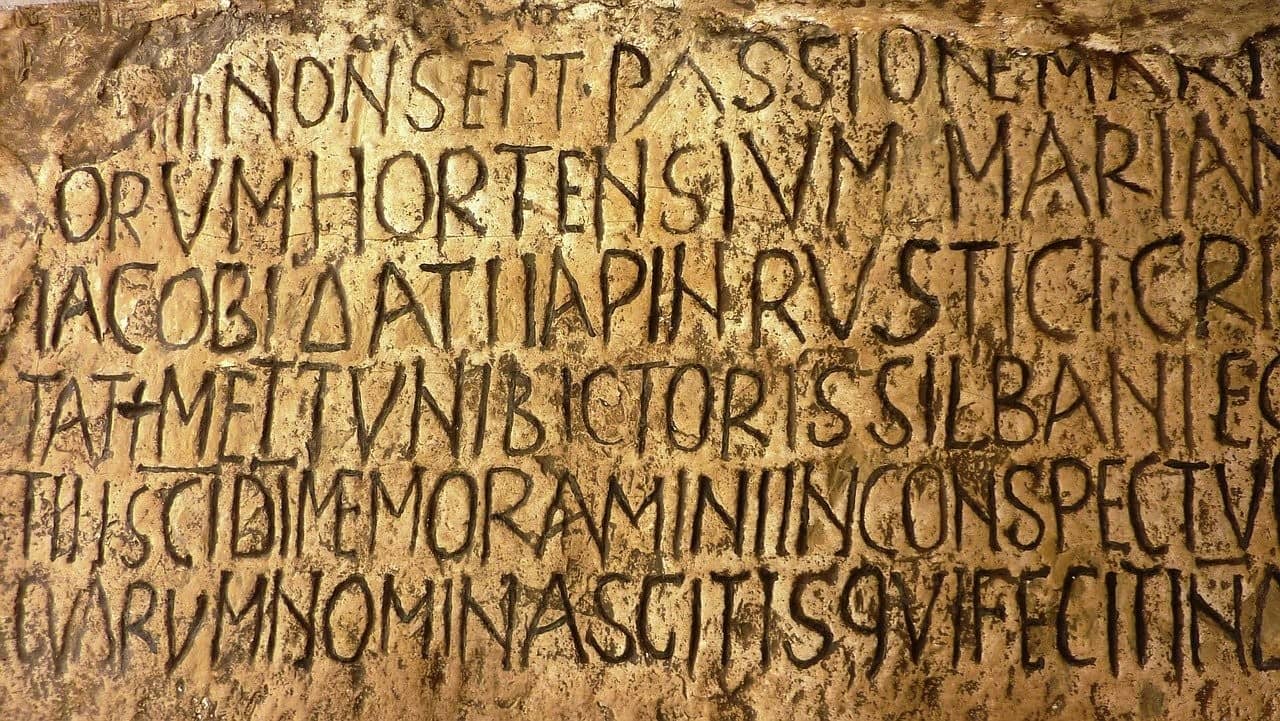 III NON SEPT · PASSIONE MART
ORVM HORTENSIVM MARIAN
IACOBI DATI IAPIN RVSTICI CRI
TAT+ METTVNI BICTORIS SILBANI EG
TII SCI DI MEMORAMINI IN CONSPECTV
QVARVM NOMINA SCITIS QVI FECIT IND